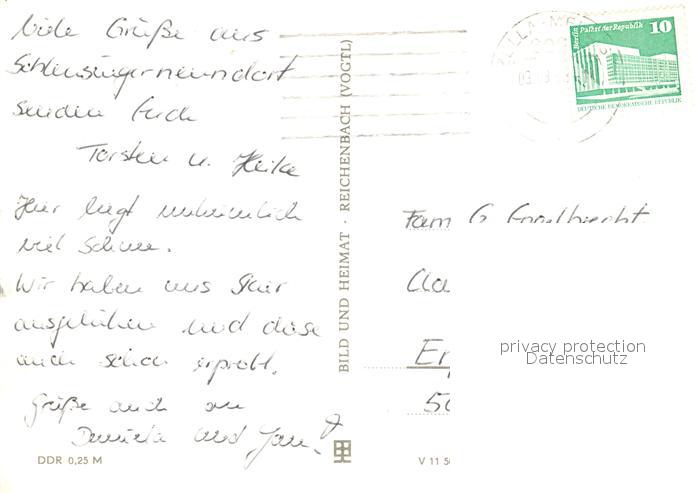 Viele Grüße aus
Schleusingerneundorf
senden Euch
Torsten u. Heike
Hier liegt unheimlich
viel Schnee.
Wir haben uns Skier
ausgeliehen und diese
auch schon erprobt.
Grüße auch an
Daniela und Jan!
DDR 0,25 M
BILD UND HEIMAT · REICHENBACH (VOGTL)
V 11 50
ZELLA-ME
Berlin Palast der Republik 10
DEUTSCHE DEMOKRATISCHE REPUBLIK
Fam G
Er
50
privacy protection
Datenschutz